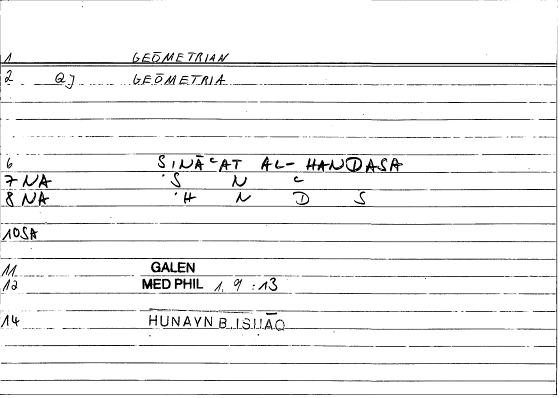 1 GEŌMETRIAN
2 QJ GEŌMETRIA
6 SINĀʿAT AL-HANDASA
7 NA ʿS N ʿ
8 NA ʿH N D S
10SA
11 GALEN
12 MED PHIL 1, 9 : 13
14 HUNAYN B. ISḤĀQ